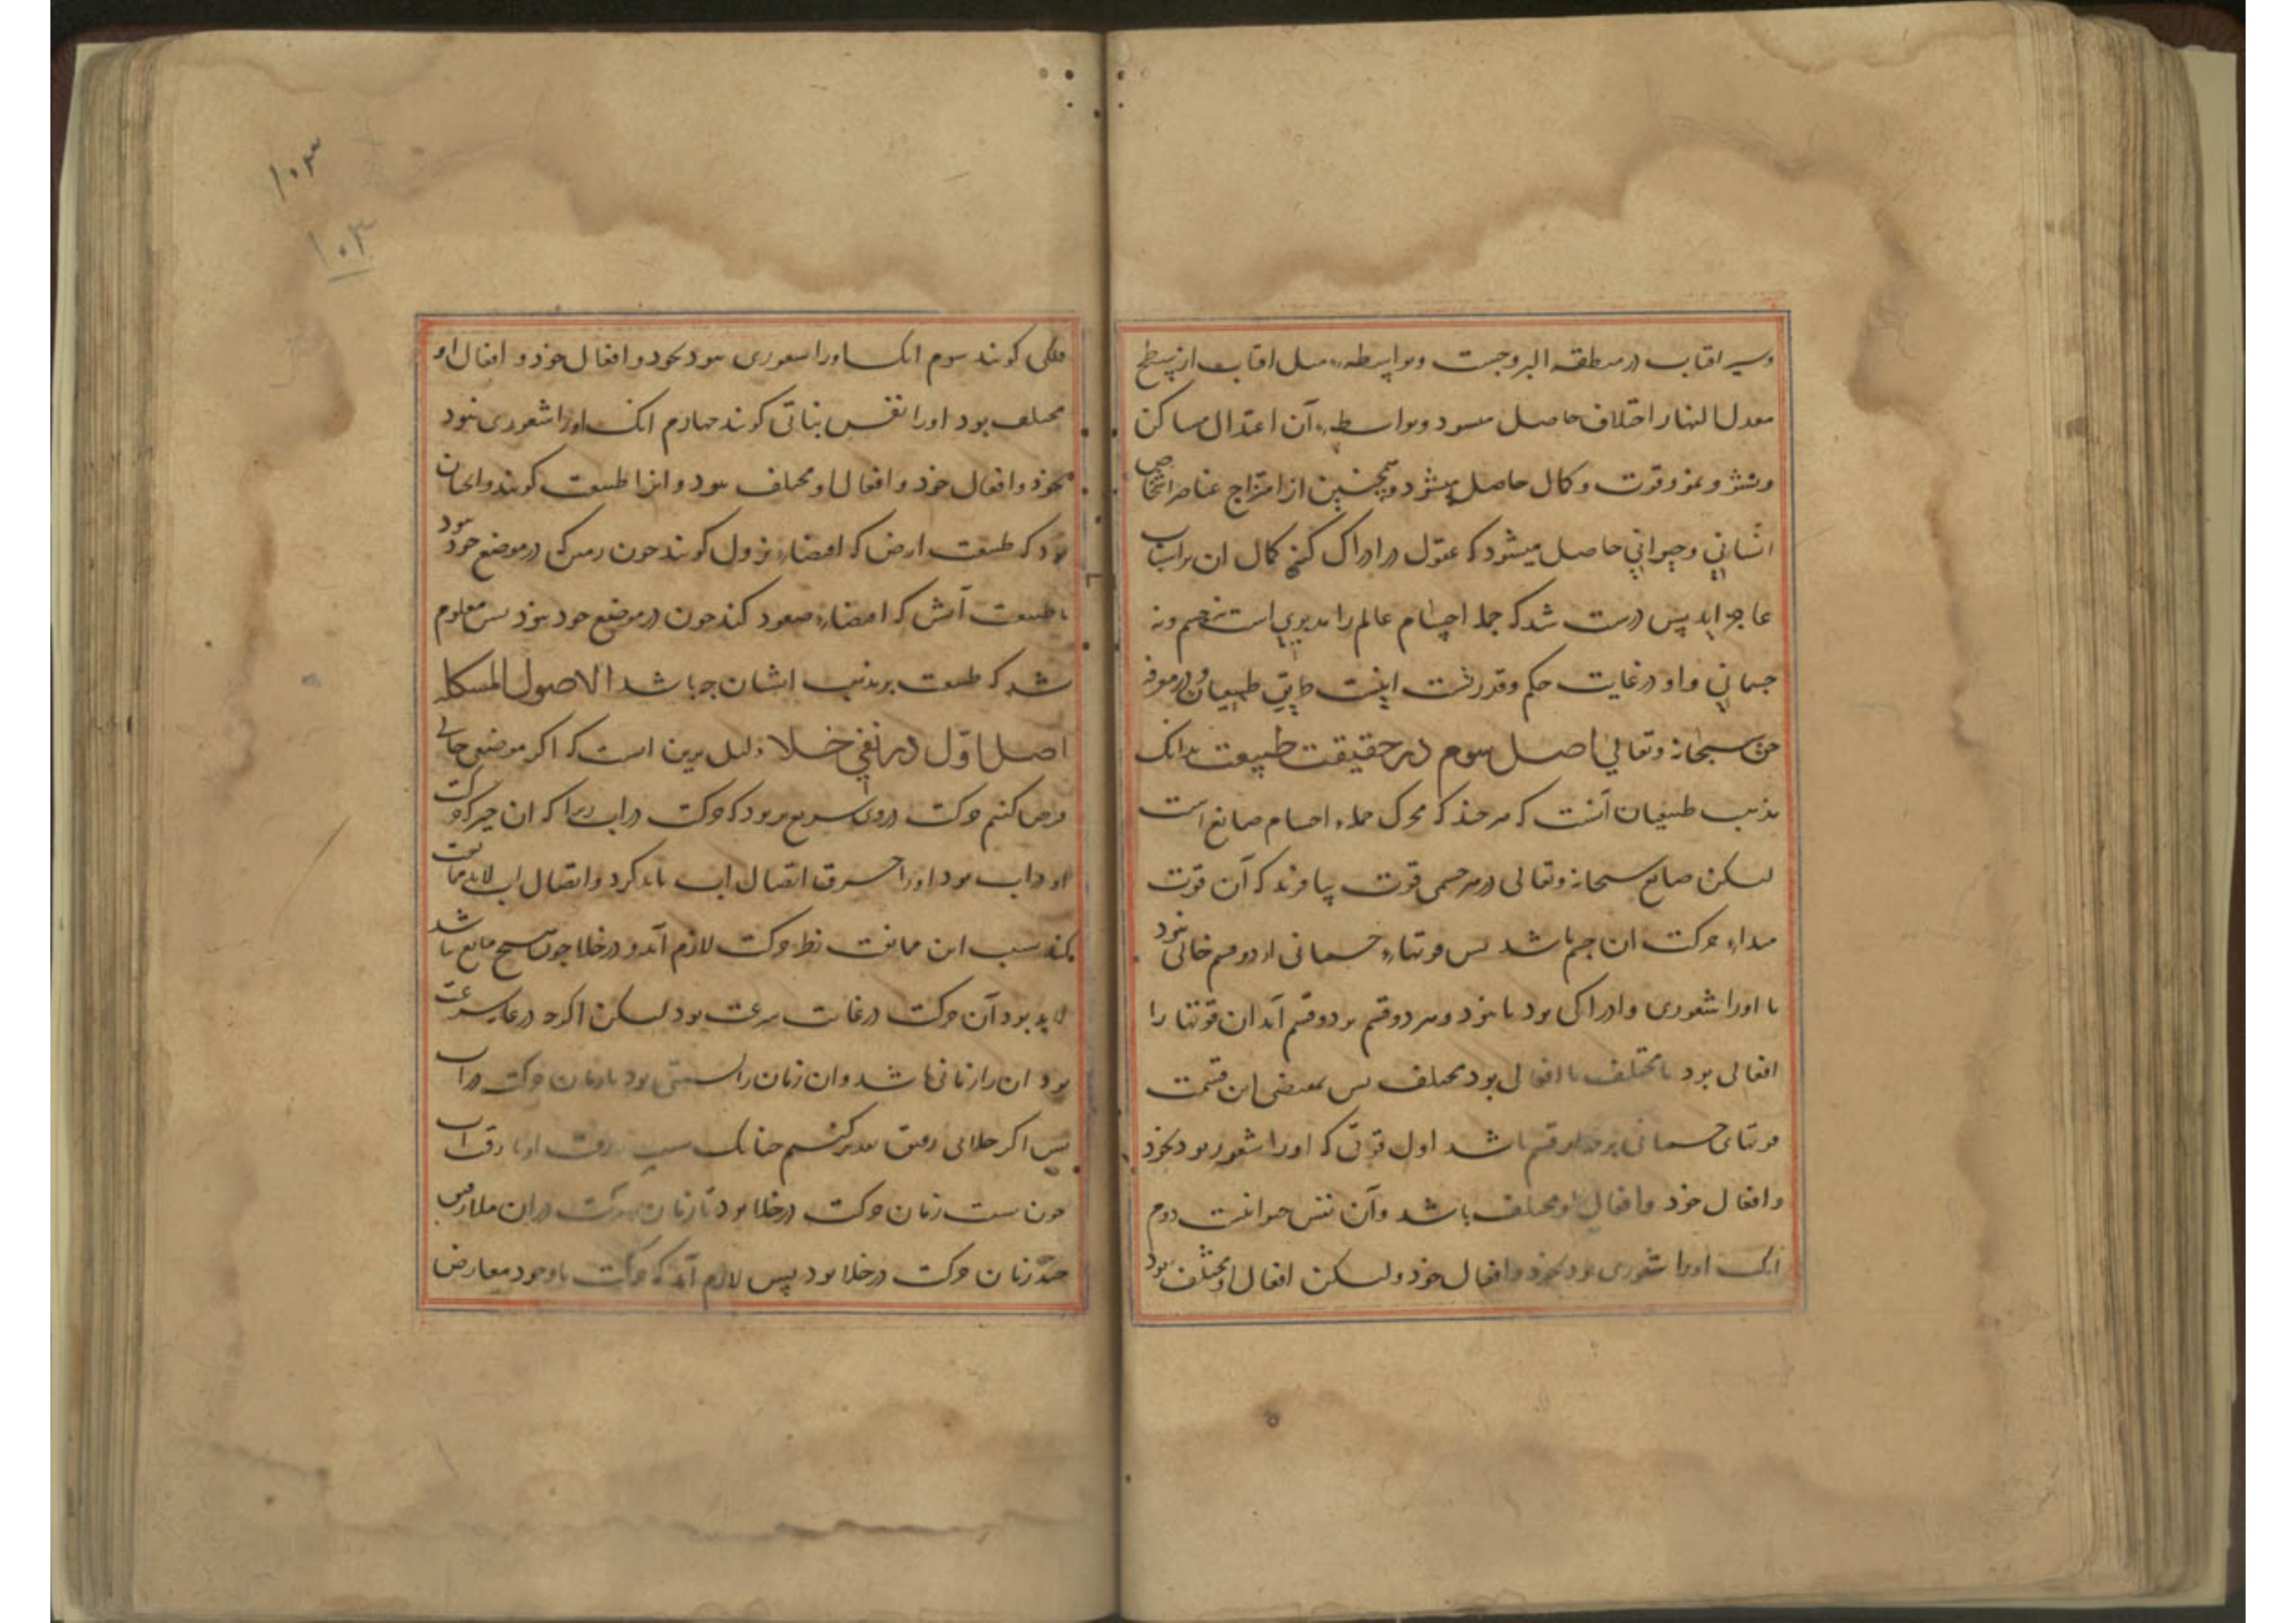 وسیر افتاب در منطقه البروجست وبواسطهٔ میل افتاب از سطح
معدل النهار اختلاف حاصل میسود وبواسطهٔ آن اعتدال مساکن
ونشو ونمو وقوت وکمال حاصل میشود وهمچنین از امتزاج عناصر اشخاص
انسانی وحیوانی حاصل میشود که عقول در ادراک کنه کمال ان براساب
عاجز اید پس درست شد که جمله اجسام عالم را مدبری است نه جسم ونه
جسمانی واو در غایت حکم وقدرتست اینست طریق طبیعیان در معرفه
حق سبحانه وتعالی اصل سوم در حقیقت طبیعت بدانک
مذهب طبیعیان آنست که هرچند که محرک جملهٔ اجسام صانع است
لیکن صانع سبحانه وتعالی در هر جسمی قوت بیافریند که آن قوت
مبداء حرکت ان جسم باشد پس قوتهاء جسمانی از دو قسم خالی نبود
یا اورا شعوری وادراکی بود یا نبود وهر دو قسم بدو قسم آید ان قوتها را
افعالی بود نامختلف یا افعالی بود مختلف پس بمقتضی این قسمت
قوتهای جسمانی بر چهار قسم باشد اول قوتی که اورا شعور بود بخود
وافعال خود وافعال او مختلف باشد وآن نفس حیوانیست دوم
انک اورا شعوری بود بخود وافعال خود ولیکن افعال او مختلف نبود
۱۰۳
۱۰۳
فلکی کویند سوم انک اورا شعوری نبود بخود وافعال خود و افعال او
مختلف بود اورا نفس نباتی کویند چهارم انک اورا شعوری نبود
بخود وافعال خود و افعال او مختلف نبود و انرا طبیعت کویند وانجان
بود که طبیعت ارض که اقتضاء نزول کویند چون زمین که در موضع خود نبود
یا طبیعت آتش که اقتضاء صعود کند چون در موضع خود نبود پس معلوم
شد که طبیعت بر مذهب ایشان چه باشد الاصول المشکله
اصل اوّل در نفی خلا دلیل برین است که اکر موضعی خالی
فرض کنیم حرکت دروی سریع تر بود که حرکت در اب زیرا که ان چیز که حرکت
او در اب بود اورا خرق اتصال اب باید کرد واتصال اب لابد ممانعت
کند بسبب این ممانعت بطو حرکت لازم آید و در خلا چون هیچ مانع نباشد
لابد بود آن حرکت در غایت سرعت بود لیکن اکرچه در غایت سرعت
بود ان را زمانی باشد وان زمان را نسبتی بود با زمان حرکت در اب
پس اکر خلائی رقیق تقدیر کنیم چنانک نسبت رقت او با رقت اب
چون نسبت زمان حرکت در خلا بود تا زمان حرکت در ان ملا رقیق
چند زمان حرکت در خلا بود پس لازم آید که حرکت با وجود معارض